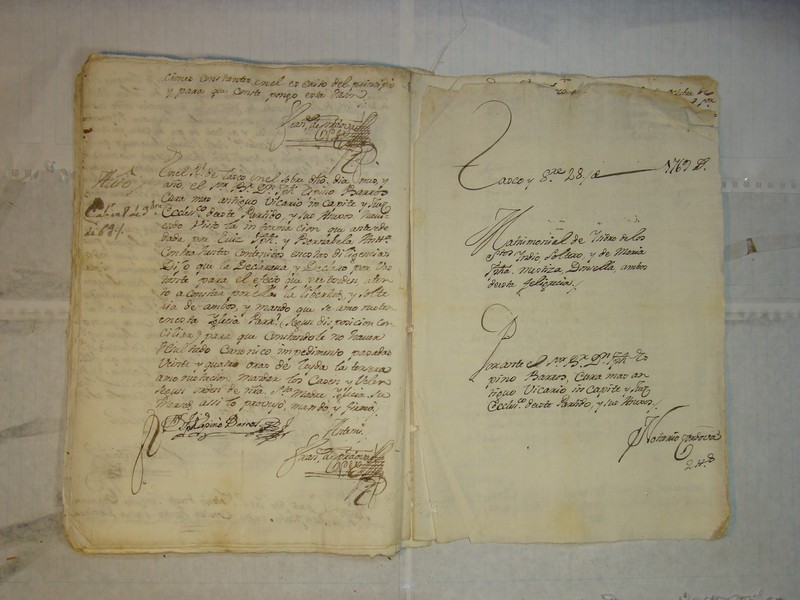 ciones constantes en el exordio del principio
y para que conste pongo esta razon
Auto
En el R.l de Taxco en el sobre dho. dia, mes, y
año, el Sr. Br. Dn. Jph. Espino Barros
Cura mas antiguo Vicario in capite y Juez
Eccleci.co deeste Partido, y sus Anexos haui-
endo Visto la informacion que antesede
dada por Luiz Jph. y Bernabela Ant.a
Contrayentes contenidos en estas diligencias
Dijo que la Declaraua y Declaro por bas-
tante para el efecto que pretenden, aten-
to a constar por ellas la libertad, y solte-
ria de ambos, y mando que se amonesten
en esta Iglecia Parr.l (segun disposicion con-
ciliar) y para que Constando le no hauer
Resultado Canonico impedimento pasadas
Veinte y quatro oras de leyda la tersera
amonestacion, mandar los Casen y Velen
segun orden de nra. S.ta Madre Yglecia. Su
Merced assi lo proveyo, mando, y firmo.
Br. Jph Espino Barros
Antemi
Taxco y 8.re 28. de 1769 a.s
Matrimonial de Isidro de los
S.tos Indio, soltero, y de Maria
Jpha. mestiza Donsella ambos
deesta feligrecia.
Por ante el Sr. Br. Dn. Jph. Es-
pino Barros, Cura mas an-
tiguo Vicario in capite y Juez
Ecclesi.co deeste Partido, y sus Anexos.
Notario